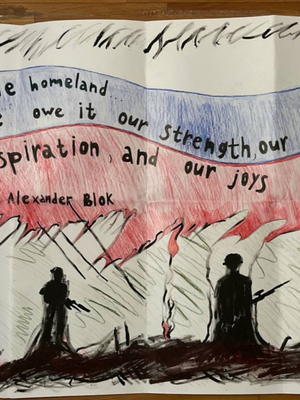 e homeland
e owe it our strength, our
spiration, and our joys
Alexander Blok